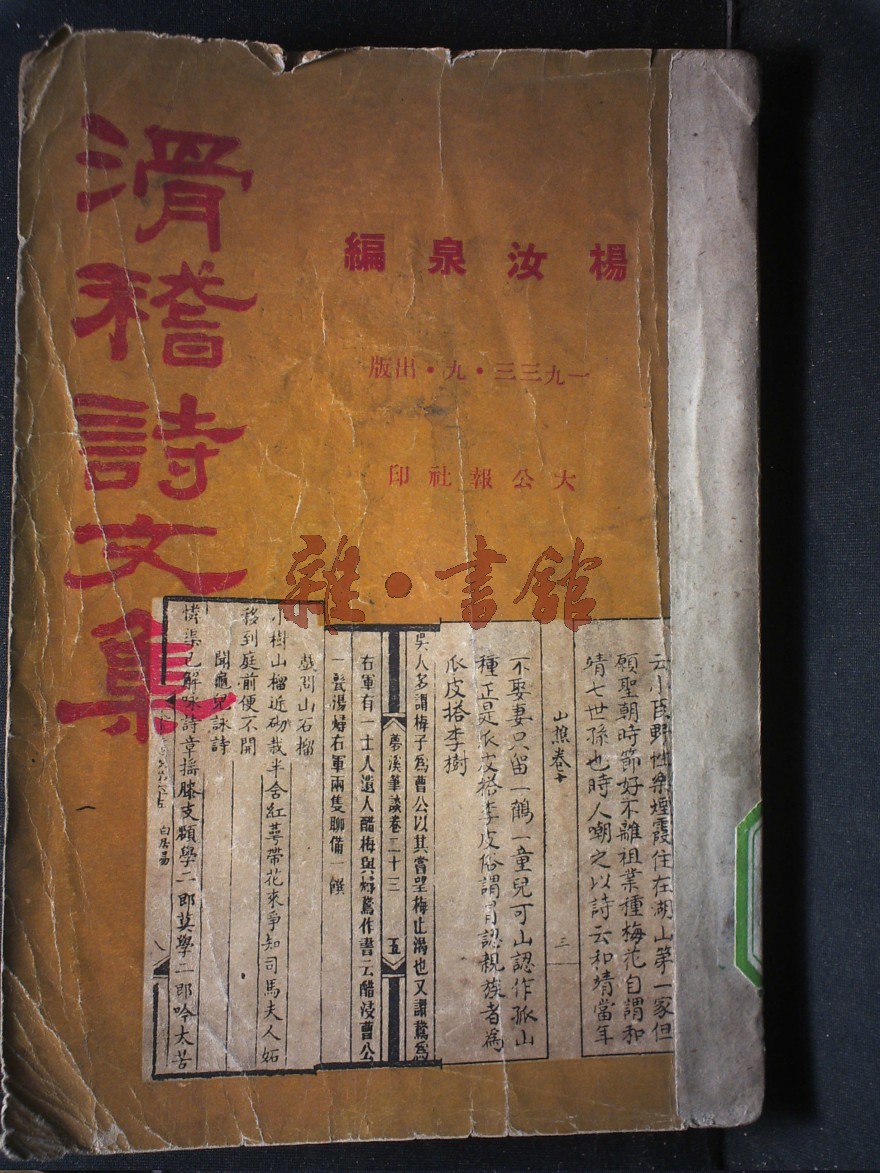 滑稽詩文集
楊汝泉編
一九三三・九・出版
大公報社印
雜・書館
云小臣野性樂煙霞住在湖山第一家但
願聖朝時節好不離祖業種梅花自謂和
靖七世孫也時人嘲之以詩云和靖當年
山樵卷下
三
不娶妻只留一鶴一童兒可山認作孤山
種正是瓜皮搭李皮俗謂冒認親族者為
瓜皮搭李樹
吳人多謂梅子為曹公以其嘗望梅止渴也又謂鵞為
夢溪筆談卷二十三
五
右軍有一士人遺人醋梅與燖鵞作書云醋浸曹公
一甏湯燖右軍兩隻聊備一饌
戲問山石榴
小樹山榴近砌栽半含紅萼帶花來爭知司馬夫人妬
移到庭前便不開
聞龜兒詠詩
憐渠已解咏詩章搖膝支頤學二郎莫學二郎吟太苦
白居易
八